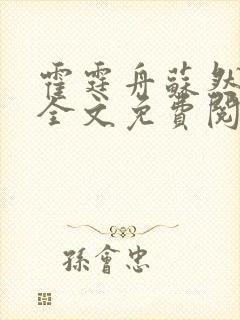 霍霆舟蘇然
全文免費閱
孫會忠